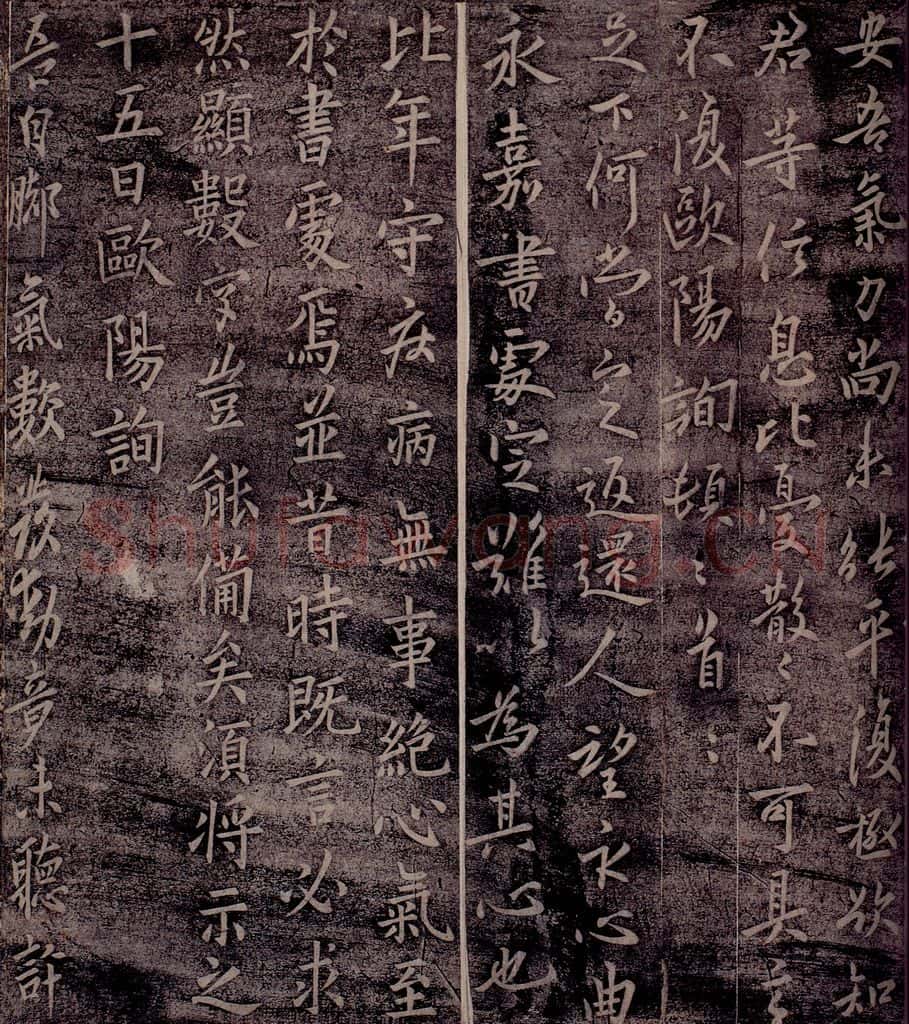 安吾氣力尚未能平復極欲知
君等信息比憂散々不可具言
不復歐陽詢頓〻首〻
足下何當定返還人望永心曲
永嘉書處定難〻為其心也
比年守疾病無事絕心氣至
於書處焉並昔時既言必求
然顯數字豈能備矣須將示之
十五日歐陽詢
吾自腳氣數發動竟未聽許
Shufawang.CN